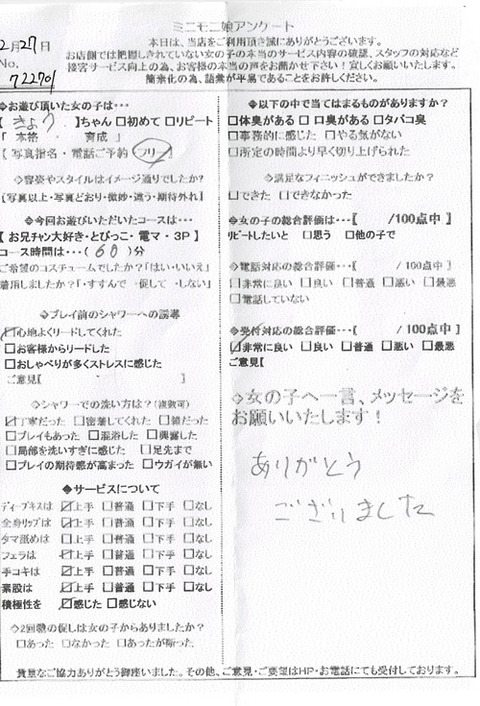 ミニモニ娘アンケート
2月27日
No.
72270
本日は、当店をご利用頂き誠にありがとうございます。
お店側では把握しきれていない女の子の本当のサービス内容の確認、スタッフの対応など
接客サービス向上の為、お客様の本当の声をお聞かせ下さい!宜しくお願いいたします。
簡素化の為、語彙が平易であることをお許しください。
◆お遊び頂いた女の子は…
【 きょう 】ちゃん □初めて □リピート
「 本格 ・ 育成 」
【 写真指名・電話ご予約 フリー 】
◇容姿やスタイルはイメージ通りでしたか?
【写真以上・写真どおり・微妙・違う・期待外れ】
◆今回お遊びいただいたコースは…
【 お兄チャン大好き・とびっこ・電マ・3P 】
コース時間は…( 60 )分
ご希望のコスチュームでしたか?「はい・いいえ」
着頂しましたか?「・すすんで ・促して ・しない」
◇プレイ前のシャワーへの誘導
☑心地よくリードしてくれた
□お客様からリードした
□おしゃべりが多くストレスに感じた
ご意見【 】
◇シャワーでの洗い方は?(複数可)
☑丁寧だった □密着してくれた □雑だった
□プレイもあった □混浴した □興奮した
□局部を洗いすぎに感じた □足先まで
□プレイの期待感が高まった □ウガイが無い
◆サービスについて
ディープキスは ☑上手 □普通 □下手 □なし
全身リップは ☑上手 □普通 □下手 □なし
タマ舐めは □上手 □普通 □下手 □なし
フェラは ☑上手 □普通 □下手 □なし
手コキは ☑上手 □普通 □下手 □なし
素股は ☑上手 □普通 □下手 □なし
積極性を ☑感じた □感じない
◇2回戦の促しは女の子からありましたか?
□あった □なかった □あったが断った
◆以下の中で当てはまるものがありますか?
□体臭がある □口臭がある □タバコ臭
□事務的に感じた □やる気がない
□所定の時間より早く切り上げられた
◇満足なフィニッシュができましたか?
□できた □できなかった
◆女の子の総合評価は…【 /100点中】
リピートしたいと □思う □他の子で
◇電話対応の総合評価…【 /100点中】
□非常に良い □良い □普通 □悪い □最悪
□電話していない
◆受付対応の総合評価…【 /100点中】
☑非常に良い □良い □普通 □悪い □最悪
ご意見【 】
◇女の子へ一言、メッセージを
お願いいたします!
ありがとう
ございました
貴重なご協力ありがとう御座いました。その他、ご意見・ご要望はHP・お電話にても受付しております。